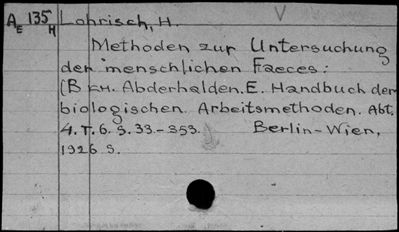 AE 135H Lohrisch, H. V
Methoden zur Untersuchung
der menschlichen Faeces:
(В кн. Abderhalden. E. Handbuch der
biologischen Arbeitsmethoden. Abt.
4. T. 6. S. 33-353. Berlin-Wien,
1926 S.